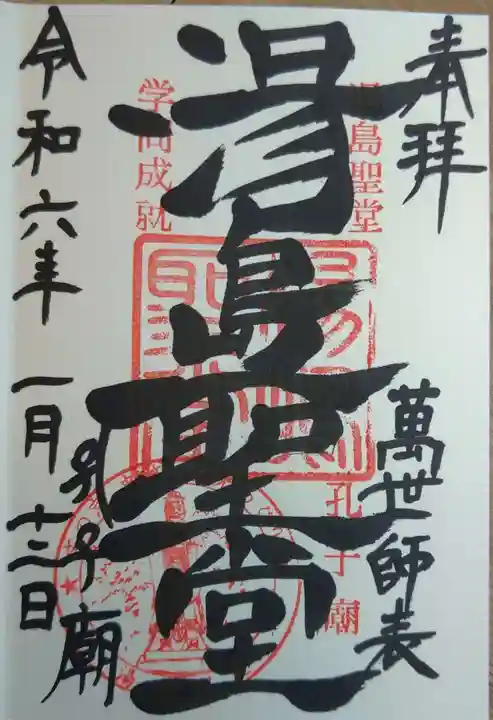 奉拝
萬世師表
湯島聖堂
湯島聖堂
孔子廟
学問成就
孔子廟
令和六年 一月十三日